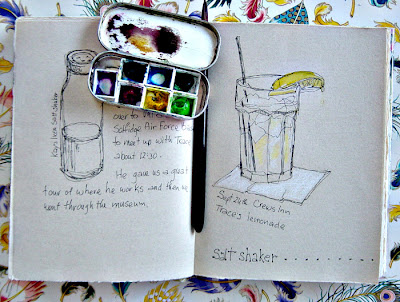 King's Inn Salt Shaker
over to
Selfridge Air Force
to meet up with Trace
about 12:30.
He gave us a great
tour of where he works and then we
went through the museum.
Sept 24th Crews Inn
Trace's lemonade
salt shaker . . . . . . . . .